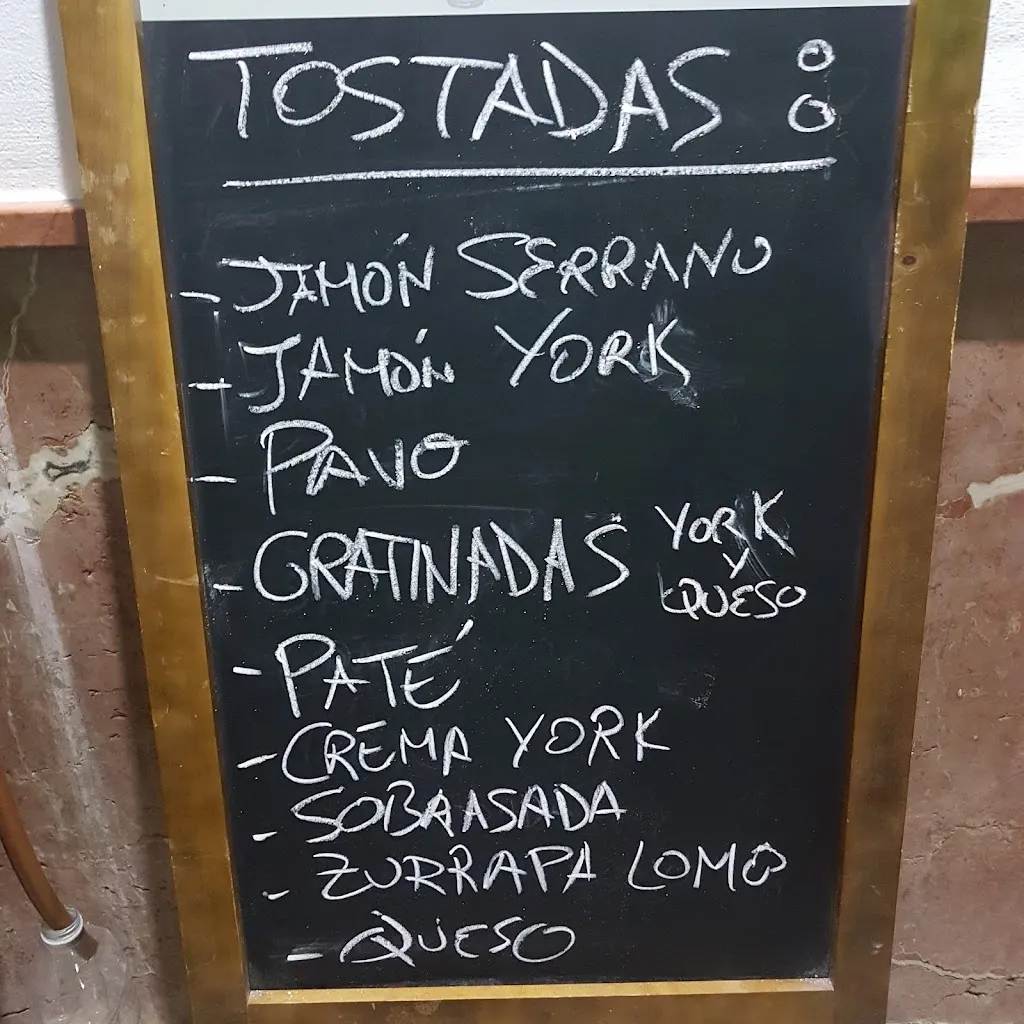 TOSTADAS :
- JAMÓN SERRANO
- JAMÓN YORK
- PAVO
- GRATINADAS YORK Y QUESO
- PATÉ
- CREMA YORK
- SOBRASADA
- ZURRAPA LOMO
- QUESO